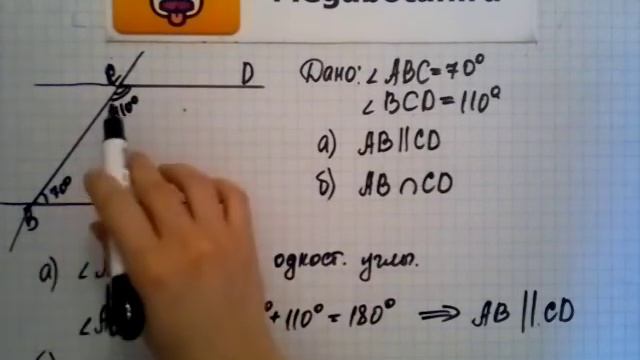 C D
110°
70°
B
Дано: ∠ABC=70°
∠BCD=110°
а) AB||CD
б) AB∩CD
а) ∠A одност. углы.
∠A °+110°=180° ⟹ AB || CD